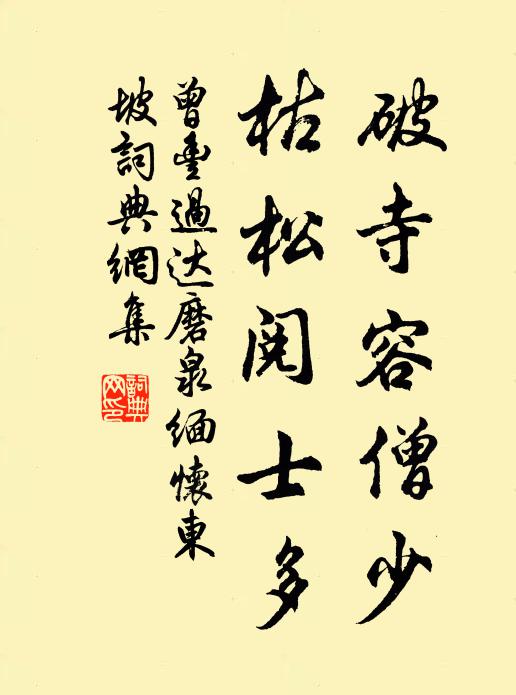 破寺容僧少
枯松閱士多
曾豊過达磨泉緬懷東
坡詞典網集
詞典
网印